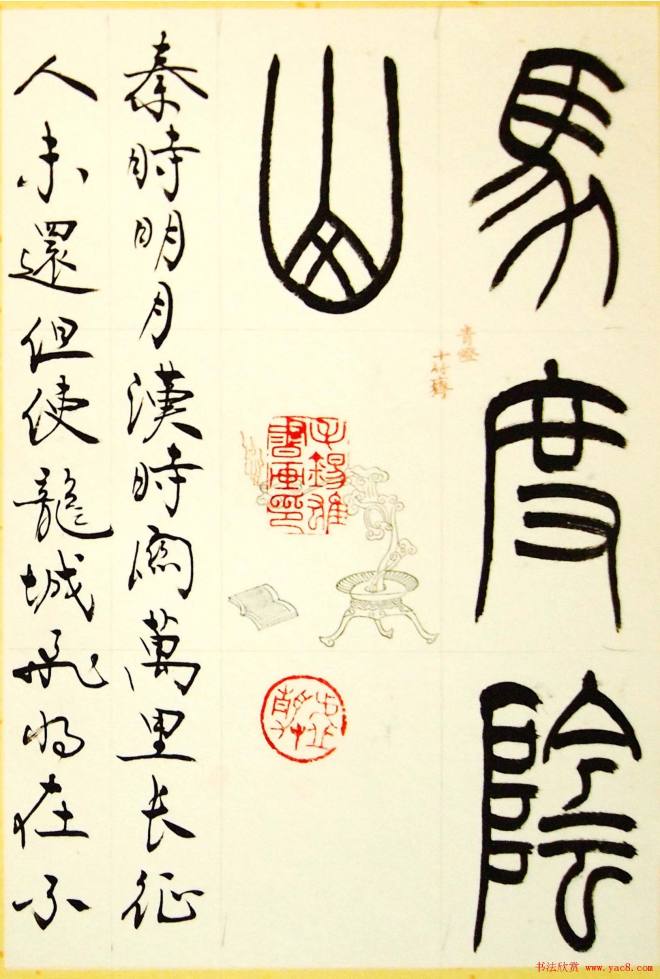 馬度陰
山
十竹齋
秦時明月漢時關萬里長征
人未還但使龍城飛將在不
书法欣赏 www.yac8.com